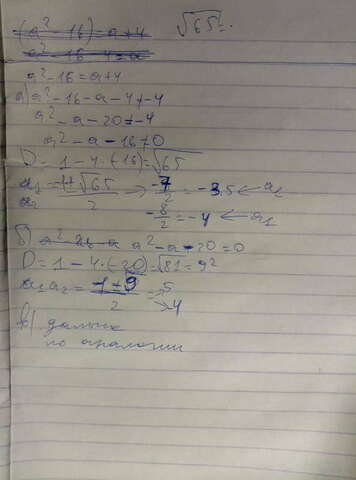 (a² - 16) = a + 4 √65 =
a² - 16 - 4 = a
a² - 16 = a + 4
а) a² - 16 - a - 4 ≠ -4
a² - a - 20 ≠ -4
a² - a - 16 ≠ 0
D = 1 - 4 · (-16) = √65
2 → -7/2 = -3,5 ← a₂
-8/2 = -4 ← a₁
б) a² - a - 20 = 0
D = 1 - 4 · (-20) = √81 = 9²
2 → 5
→ 4
в) дальше
по аналогии